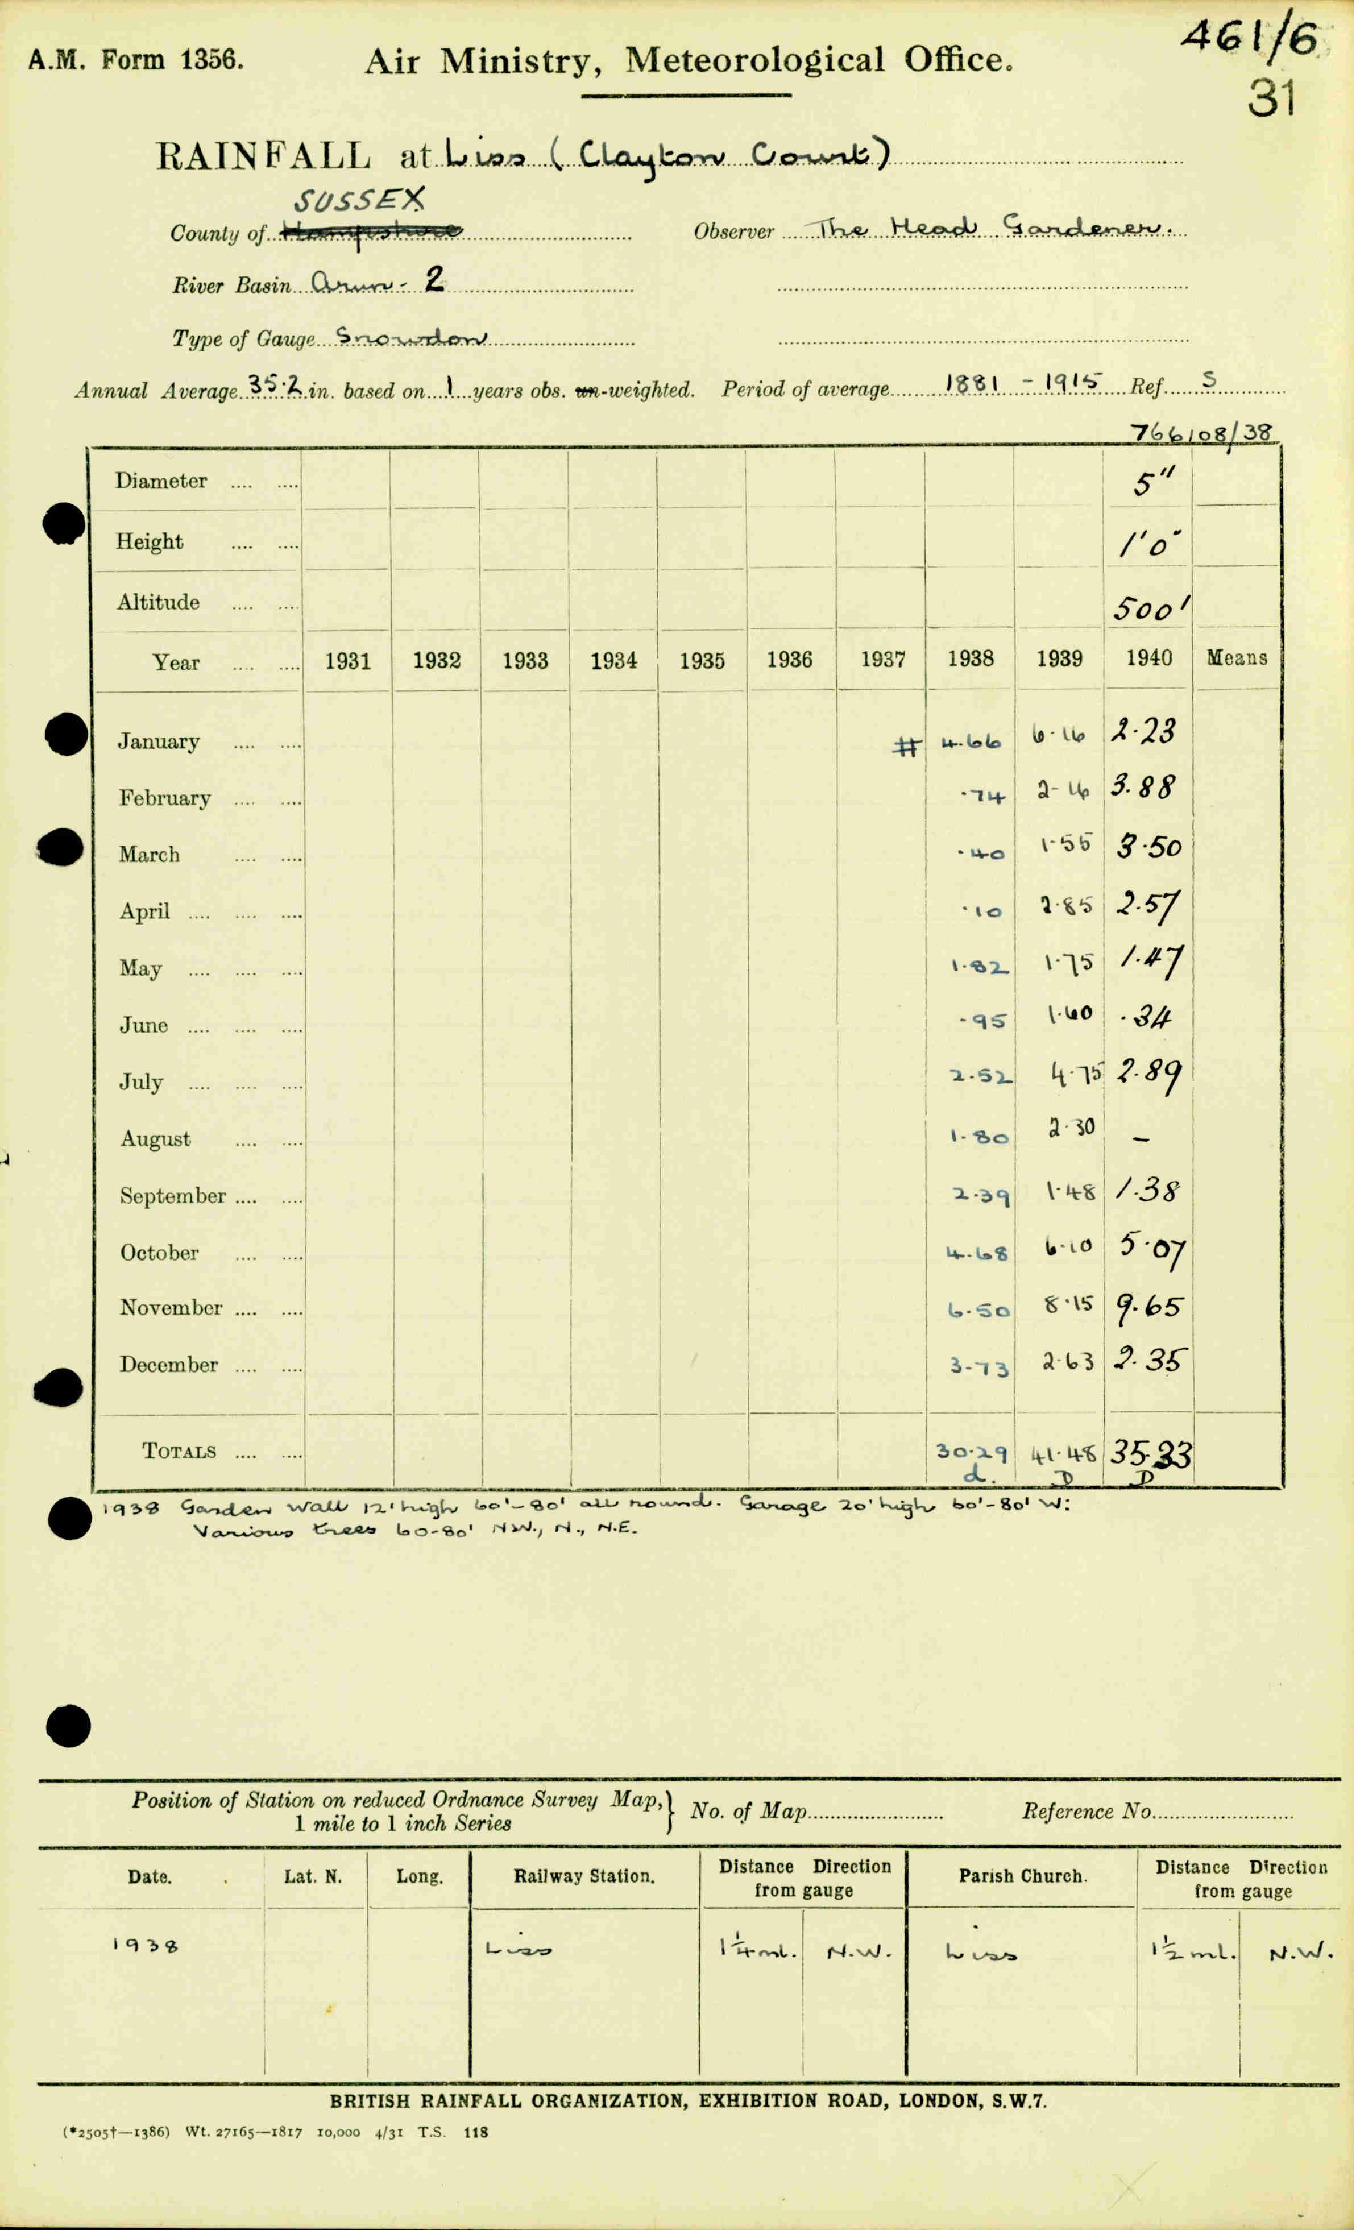 461/6
A.M. Form 1356. Air Ministry, Meteorological Office.
31
RAINFALL at Liss (Clayton Court)
SUSSEX
County of Hampshire Observer The Head Gardener.
River Basin Arun - 2
Type of Gauge Snowdon
Annual Average 35·2 in. based on 1 years obs. un-weighted. Period of average 1881 - 1915 Ref. S
766108/38
Diameter .... .... 5"
Height .... .... 1'0"
Altitude .... .... 500'
Year .... .... 1931 1932 1933 1934 1935 1936 1937 1938 1939 1940 Means
January .... .... # 4.66 6.16 2.23
February .... .... .74 2.16 3.88
March .... .... .40 1.55 3.50
April .... .... .... .10 2.85 2.57
May .... .... .... 1.82 1.75 1.47
June .... .... .... .95 1.60 .34
July .... .... .... 2.52 4.75 2.89
August .... .... 1.80 2.30 –
September .... .... 2.39 1.48 1.38
October .... .... 4.68 6.10 5.07
November .... .... 6.50 8.15 9.65
December .... .... 3.73 2.63 2.35
TOTALS .... .... 30.29 41.48 35.33
d. D D
1938 Garden wall 12' high 60'-80' all round. Garage 20' high 60'-80' W:
Various trees 60-80' NW., N., N.E.
Position of Station on reduced Ordnance Survey Map,} No. of Map Reference No.
1 mile to 1 inch Series
Date. Lat. N. Long. Railway Station. Distance Direction from gauge Parish Church. Distance Direction from gauge
1938 Liss 1¼ ml. N.W. Liss 1½ ml. N.W.
BRITISH RAINFALL ORGANIZATION, EXHIBITION ROAD, LONDON, S.W.7.
(*2505†—1386) Wt. 27165—1817 10,000 4/31 T.S. 118